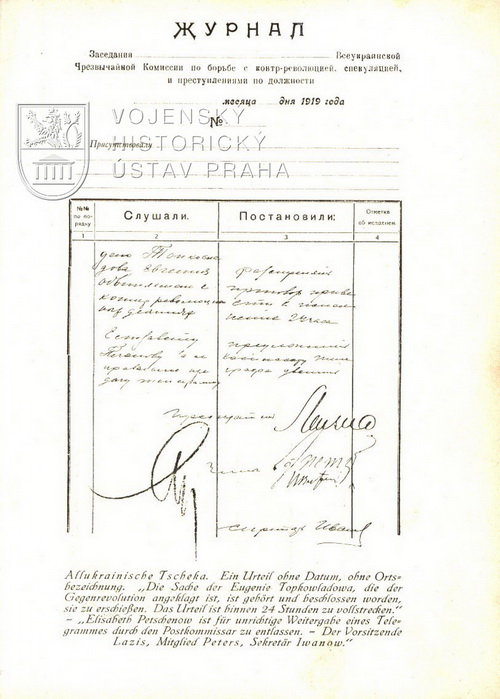 ЖУРНАЛ
Заседания Всеукраинской
Чрезвычайной Комиссии по борьбе с контр-революцией, спекуляцией,
и преступлениями по должности
месяца дня 1919 года
№
Присутствовали
VOJENSKÝ
HISTORICKÝ
ÚSTAV PRAHA
№№ по по-рядку
Слушали.
Постановили:
Отметка об исполнен.
1
2
3
4
дело
Евгения
обвиняемая с
контр революцион
расстрелять
приговор приве
сти в исполн
ение 24 часа
секретарь Иванов
Allukrainische Tscheka. Ein Urteil ohne Datum, ohne Orts-
bezeichnung. „Die Sache der Eugenie Topkowladowa, die der
Gegenrevolution angeklagt ist, ist gehört und beschlossen worden,
sie zu erschießen. Das Urteil ist binnen 24 Stunden zu vollstrecken.“
– „Elisabeth Petschenow ist für unrichtige Weitergabe eines Tele-
grammes durch den Postkommissar zu entlassen. – Der Vorsitzende
Lazis, Mitglied Peters, Sekretär Iwanow.“